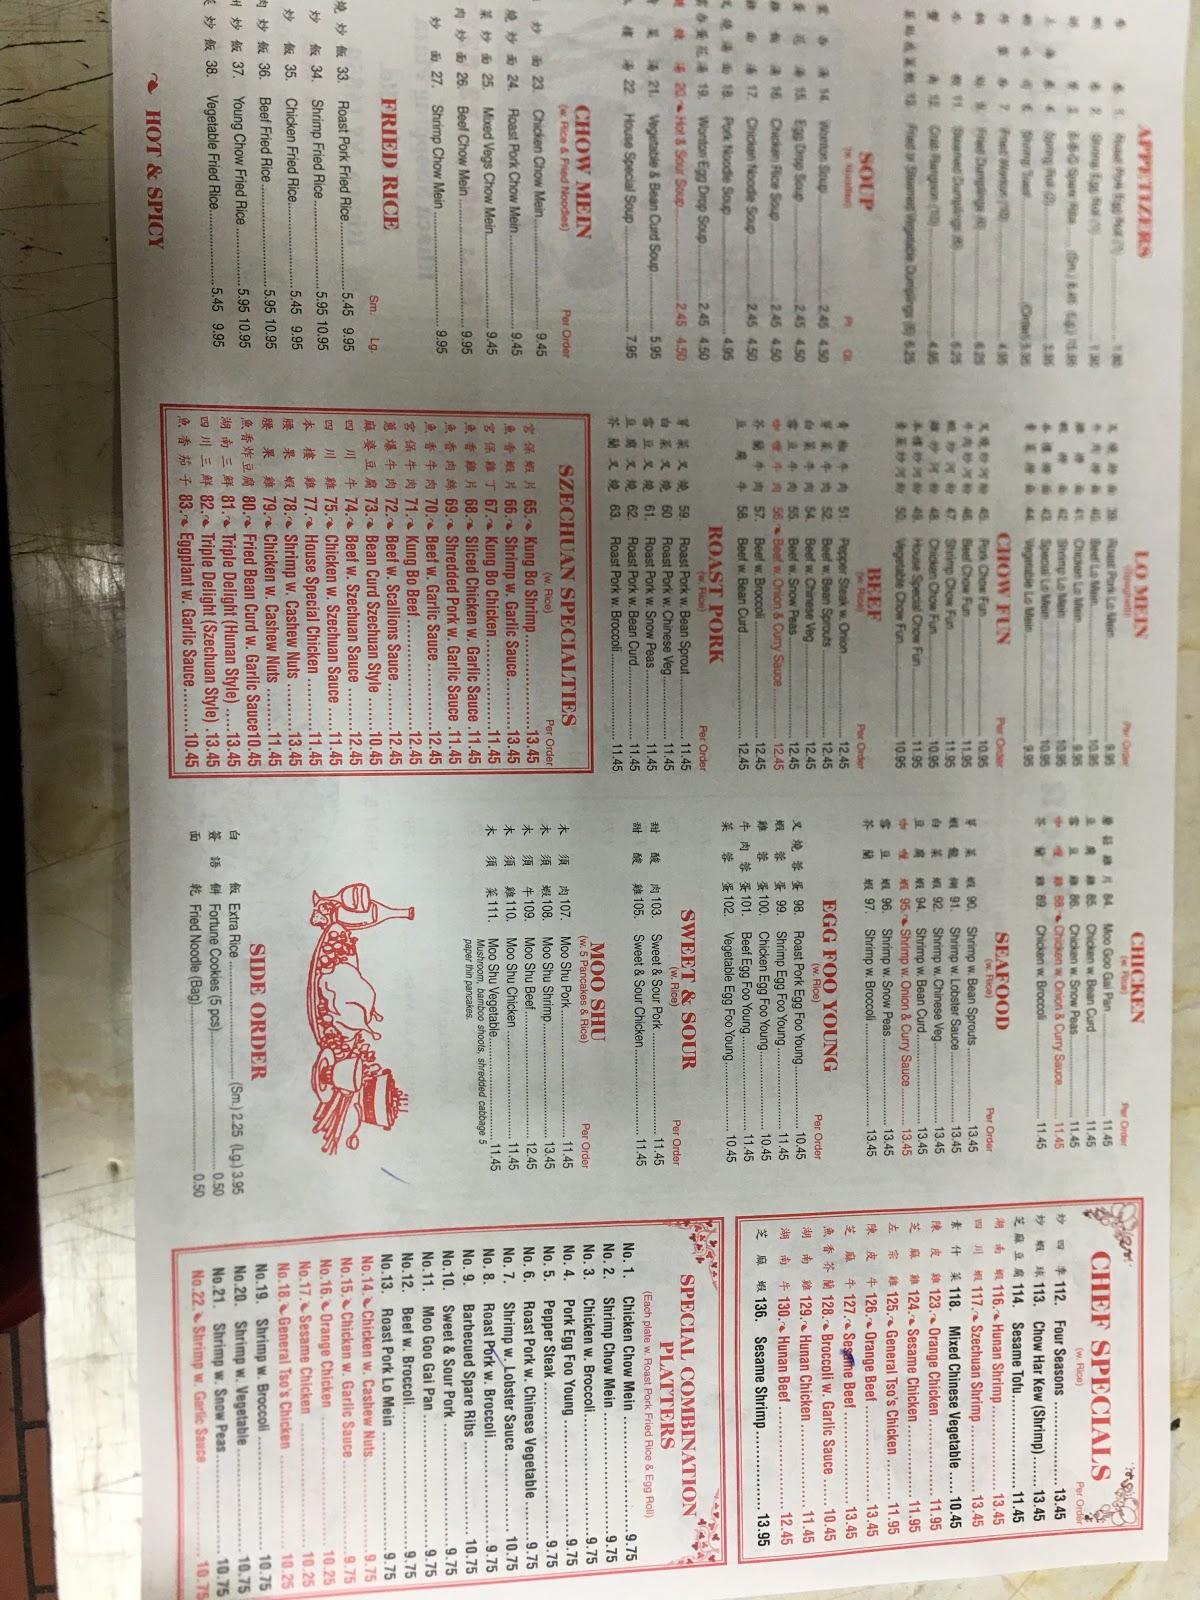 APPETIZERS
1. Roast Pork Egg Roll (1) 1.80
2. Shrimp Egg Roll (1) 1.80
SOUP
(w. Noodles)
Pt. Qt.
雲 吞 湯 14. Wonton Soup 2.45 4.50
蛋 花 湯 15. Egg Drop Soup 2.45 4.50
雞 飯 湯 16. Chicken Rice Soup 2.45 4.50
雞 面 湯 17. Chicken Noodle Soup 2.45 4.50
叉 燒 湯 面 18. Pork Noodle Soup 4.95
19. Wonton Egg Drop Soup 2.45 4.50
20. Hot & Sour Soup 2.45 4.50
菜 湯 21. Vegetable & Bean Curd Soup 5.95
樓 湯 22. House Special Soup 7.95
CHOW MEIN
(w. Rice & Fried Noodles)
Per Order
炒 面 23. Chicken Chow Mein 9.45
燒 炒 面 24. Roast Pork Chow Mein 9.45
菜 炒 面 25. Mixed Vegs Chow Mein 9.45
肉 炒 面 26. Beef Chow Mein 9.95
炒 面 27. Shrimp Chow Mein 9.95
FRIED RICE
Sm. Lg.
燒 炒 飯 33. Roast Pork Fried Rice 5.45 9.95
炒 飯 34. Shrimp Fried Rice 5.95 10.95
炒 飯 35. Chicken Fried Rice 5.45 9.95
肉 炒 飯 36. Beef Fried Rice 5.95 10.95
州 炒 飯 37. Young Chow Fried Rice 5.95 10.95
菜 炒 飯 38. Vegetable Fried Rice 5.45 9.95
HOT & SPICY
LO MEIN
(Spaghetti)
Per Order
39. Roast Pork Lo Mein 9.95
40. Beef Lo Mein 10.95
41. Chicken Lo Mein 9.95
42. Shrimp Lo Mein 10.95
43. Special Lo Mein 10.95
44. Vegetable Lo Mein 9.95
CHOW FUN
Per Order
45. Pork Chow Fun 10.95
46. Beef Chow Fun 11.95
47. Shrimp Chow Fun 11.95
48. Chicken Chow Fun 10.95
49. House Special Chow Fun 11.95
50. Vegetable Chow Fun 10.95
BEEF
(w. Rice)
Per Order
青 椒 牛 肉 51. Pepper Steak w. Onion 12.45
芽 菜 牛 肉 52. Beef w. Bean Sprouts 12.45
白 菜 牛 肉 54. Beef w. Chinese Veg 12.45
雪 豆 牛 肉 55. Beef w. Snow Peas 12.45
咖 喱 牛 肉 56. Beef w. Onion & Curry Sauce 12.45
芥 蘭 牛 肉 57. Beef w. Broccoli 12.45
豆 腐 牛 58. Beef w. Bean Curd 12.45
ROAST PORK
(w. Rice)
Per Order
芽 菜 叉 燒 59. Roast Pork w. Bean Sprout 11.45
白 菜 叉 燒 60. Roast Pork w. Chinese Veg 11.45
雪 豆 叉 燒 61. Roast Pork w. Snow Peas 11.45
豆 腐 叉 燒 62. Roast Pork w. Bean Curd 11.45
芥 蘭 叉 燒 63. Roast Pork w. Broccoli 11.45
SZECHUAN SPECIALTIES
(w. Rice)
Per Order
宮 保 蝦 片 65. Kung Bo Shrimp 13.45
魚 香 蝦 片 66. Shrimp w. Garlic Sauce 13.45
宮 保 雞 丁 67. Kung Bo Chicken 11.45
魚 香 雞 片 68. Sliced Chicken w. Garlic Sauce 11.45
魚 香 肉 絲 69. Shredded Pork w. Garlic Sauce 11.45
魚 香 牛 肉 70. Beef w. Garlic Sauce 12.45
宮 保 牛 肉 71. Kung Bo Beef 12.45
蔥 爆 牛 肉 72. Beef w. Scallions Sauce 12.45
麻 婆 豆 腐 73. Bean Curd Szechuan Style 10.45
四 川 牛 74. Beef w. Szechuan Sauce 12.45
四 川 雞 75. Chicken w. Szechuan Sauce 11.45
本 樓 雞 77. House Special Chicken 11.45
腰 果 蝦 78. Shrimp w. Cashew Nuts 13.45
腰 果 雞 79. Chicken w. Cashew Nuts 11.45
魚香炸豆腐 80. Fried Bean Curd w. Garlic Sauce 10.45
湖 南 三 鮮 81. Triple Delight (Hunan Style) 13.45
四 川 三 鮮 82. Triple Delight (Szechuan Style) 13.45
魚 香 茄 子 83. Eggplant w. Garlic Sauce 10.45
CHICKEN
(w. Rice)
Per Order
蘑 菇 雞 片 84. Moo Goo Gai Pan 11.45
豆 腐 雞 85. Chicken w. Bean Curd 11.45
雪 豆 雞 86. Chicken w. Snow Peas 11.45
咖 喱 雞 88. Chicken w. Onion & Curry Sauce 11.45
芥 蘭 雞 89. Chicken w. Broccoli 11.45
SEAFOOD
(w. Rice)
Per Order
芽 菜 蝦 90. Shrimp w. Bean Sprouts 13.45
蝦 龍 糊 91. Shrimp w. Lobster Sauce 13.45
白 菜 蝦 92. Shrimp w. Chinese Veg 13.45
豆 腐 蝦 94. Shrimp w. Bean Curd 13.45
咖 喱 蝦 95. Shrimp w. Onion & Curry Sauce 13.45
雪 豆 蝦 96. Shrimp w. Snow Peas 13.45
芥 蘭 蝦 97. Shrimp w. Broccoli 13.45
EGG FOO YOUNG
(w. Rice)
Per Order
叉 燒 蓉 蛋 98. Roast Pork Egg Foo Young 10.45
蝦 蓉 蛋 99. Shrimp Egg Foo Young 11.45
雞 蓉 蛋 100. Chicken Egg Foo Young 10.45
牛 肉 蓉 蛋 101. Beef Egg Foo Young 11.45
菜 蓉 蛋 102. Vegetable Egg Foo Young 10.45
SWEET & SOUR
(w. Rice)
Per Order
甜 酸 肉 103. Sweet & Sour Pork 11.45
甜 酸 雞 105. Sweet & Sour Chicken 11.45
MOO SHU
(w. 5 Pancakes & Rice)
Per Order
木 須 肉 107. Moo Shu Pork 11.45
木 須 蝦 108. Moo Shu Shrimp 13.45
木 須 牛 109. Moo Shu Beef 12.45
木 須 雞 110. Moo Shu Chicken 11.45
木 須 菜 111. Moo Shu Vegetable 11.45
Mushroom, bamboo shoots, shredded cabbage 5
paper thin pancakes.
SIDE ORDER
白 飯 Extra Rice (Sm.) 2.25 (Lg.) 3.95
簽 語 餅 Fortune Cookies (5 pcs) 0.50
面 乾 Fried Noodle (Bag) 0.50
CHEF SPECIALS
(w. Rice)
Per Order
炒 四 季 112. Four Seasons 13.45
炒 蝦 球 113. Chow Har Kew (Shrimp) 13.45
芝 麻 豆 腐 114. Sesame Tofu 11.45
湖 南 蝦 116. Hunan Shrimp 13.45
四 川 蝦 117. Szechuan Shrimp 13.45
素 什 菜 118. Mixed Chinese Vegetable 10.45
陳 皮 雞 123. Orange Chicken 11.95
芝 麻 雞 124. Sesame Chicken 11.95
左 宗 雞 125. General Tso's Chicken 11.95
陳 皮 牛 126. Orange Beef 13.45
芝 麻 牛 127. Sesame Beef 13.45
魚 香 芥 蘭 128. Broccoli w. Garlic Sauce 10.45
湖 南 雞 129. Hunan Chicken 11.45
湖 南 牛 130. Hunan Beef 12.45
芝 麻 蝦 136. Sesame Shrimp 13.95
SPECIAL COMBINATION
PLATTERS
(Each plate w. Roast Pork Fried Rice & Egg Roll)
No. 1. Chicken Chow Mein 9.75
No. 2. Shrimp Chow Mein 9.75
No. 3. Chicken w. Broccoli 9.75
No. 4. Pork Egg Foo Young 9.75
No. 5. Pepper Steak 9.75
No. 6. Roast Pork w. Chinese Vegetable 9.75
No. 7. Shrimp w. Lobster Sauce 10.75
No. 8. Roast Pork w. Broccoli 9.75
No. 9. Barbecued Spare Ribs 10.75
No.10. Sweet & Sour Pork 9.75
No.11. Moo Goo Gai Pan 9.75
No.12. Beef w. Broccoli 9.75
No.13. Roast Pork Lo Mein 9.75
No.14. Chicken w. Cashew Nuts 9.75
No.15. Chicken w. Garlic Sauce 9.75
No.16. Orange Chicken 10.25
No.17. Sesame Chicken 10.25
No.18. General Tso's Chicken 10.25
No.19. Shrimp w. Broccoli 10.75
No.20. Shrimp w. Vegetable 10.75
No.21. Shrimp w. Snow Peas 10.75
No.22. Shrimp w. Garlic Sauce 10.75